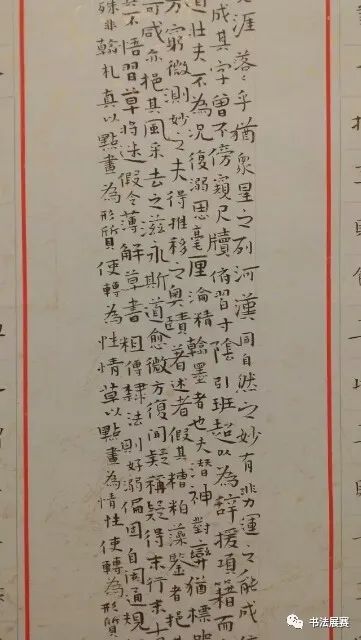 涯落々乎猶衆星之列河漢同自然之妙有非力運之能成信
成其字曾不傍窺尺牘俯習寸陰引班超以為辭援項籍而
道壯夫不為況復溺思毫厘淪精翰墨者也夫潛神對弈猶標坐
方窮微測妙之夫得推移之奧賾著述者假其糟粕藻鑒者挹
可咸亦挹其風采去之滋永斯道愈微方復聞疑稱疑得末行末古
不悟習草將迷假令薄解草書粗傳隸法則好溺偏固自閡通規
殊非翰札真以點畫為形質使轉為性情草以點畫為情性使轉為形質
书法展赛